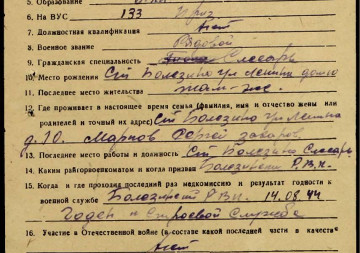 5. Образование
6. На ВУС 133
7. Должностная квалификация нет
8. Военное звание Рядовой
9. Гражданская специальность Слесарь
10. Место рождения ст Болезино ул Ленина дом 10
11. Последнее место жительства там-же
12. Где проживает в настоящее время семья (фамилия, имя и отчество жены или
родителей и точный их адрес) ст Болезино ул Ленина
д. 10. Сергей
13. Последнее место работы и должность ст Болезино Слесарь
14. Каким райгорвоенкоматом и когда призван Болезинский Р.В.К.
15. Когда и где проходил последний раз медкомиссию и результат годности к
военной службе Болезинский Р.В.К. 14.08.44
Годен к строевой службе
16. Участие в Отечественной войне (в составе какой последней части в качестве
нет